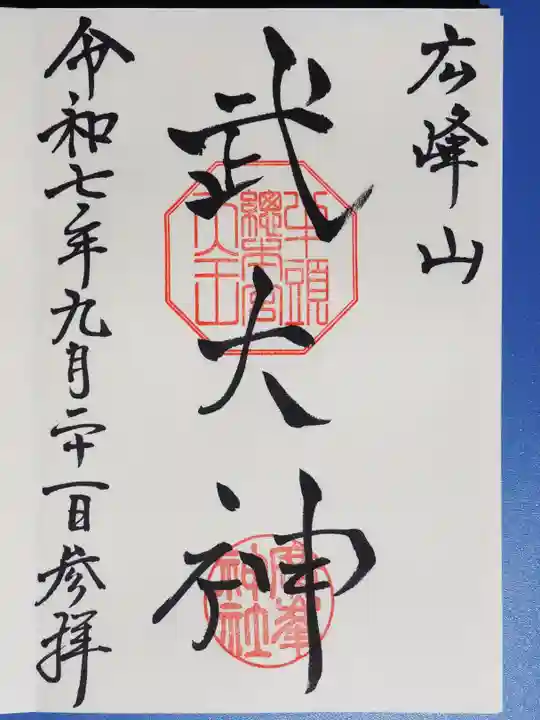 広峰山
武大神
牛頭
總本宮
天王
廣峯
神社
令和七年九月二十一日参拝